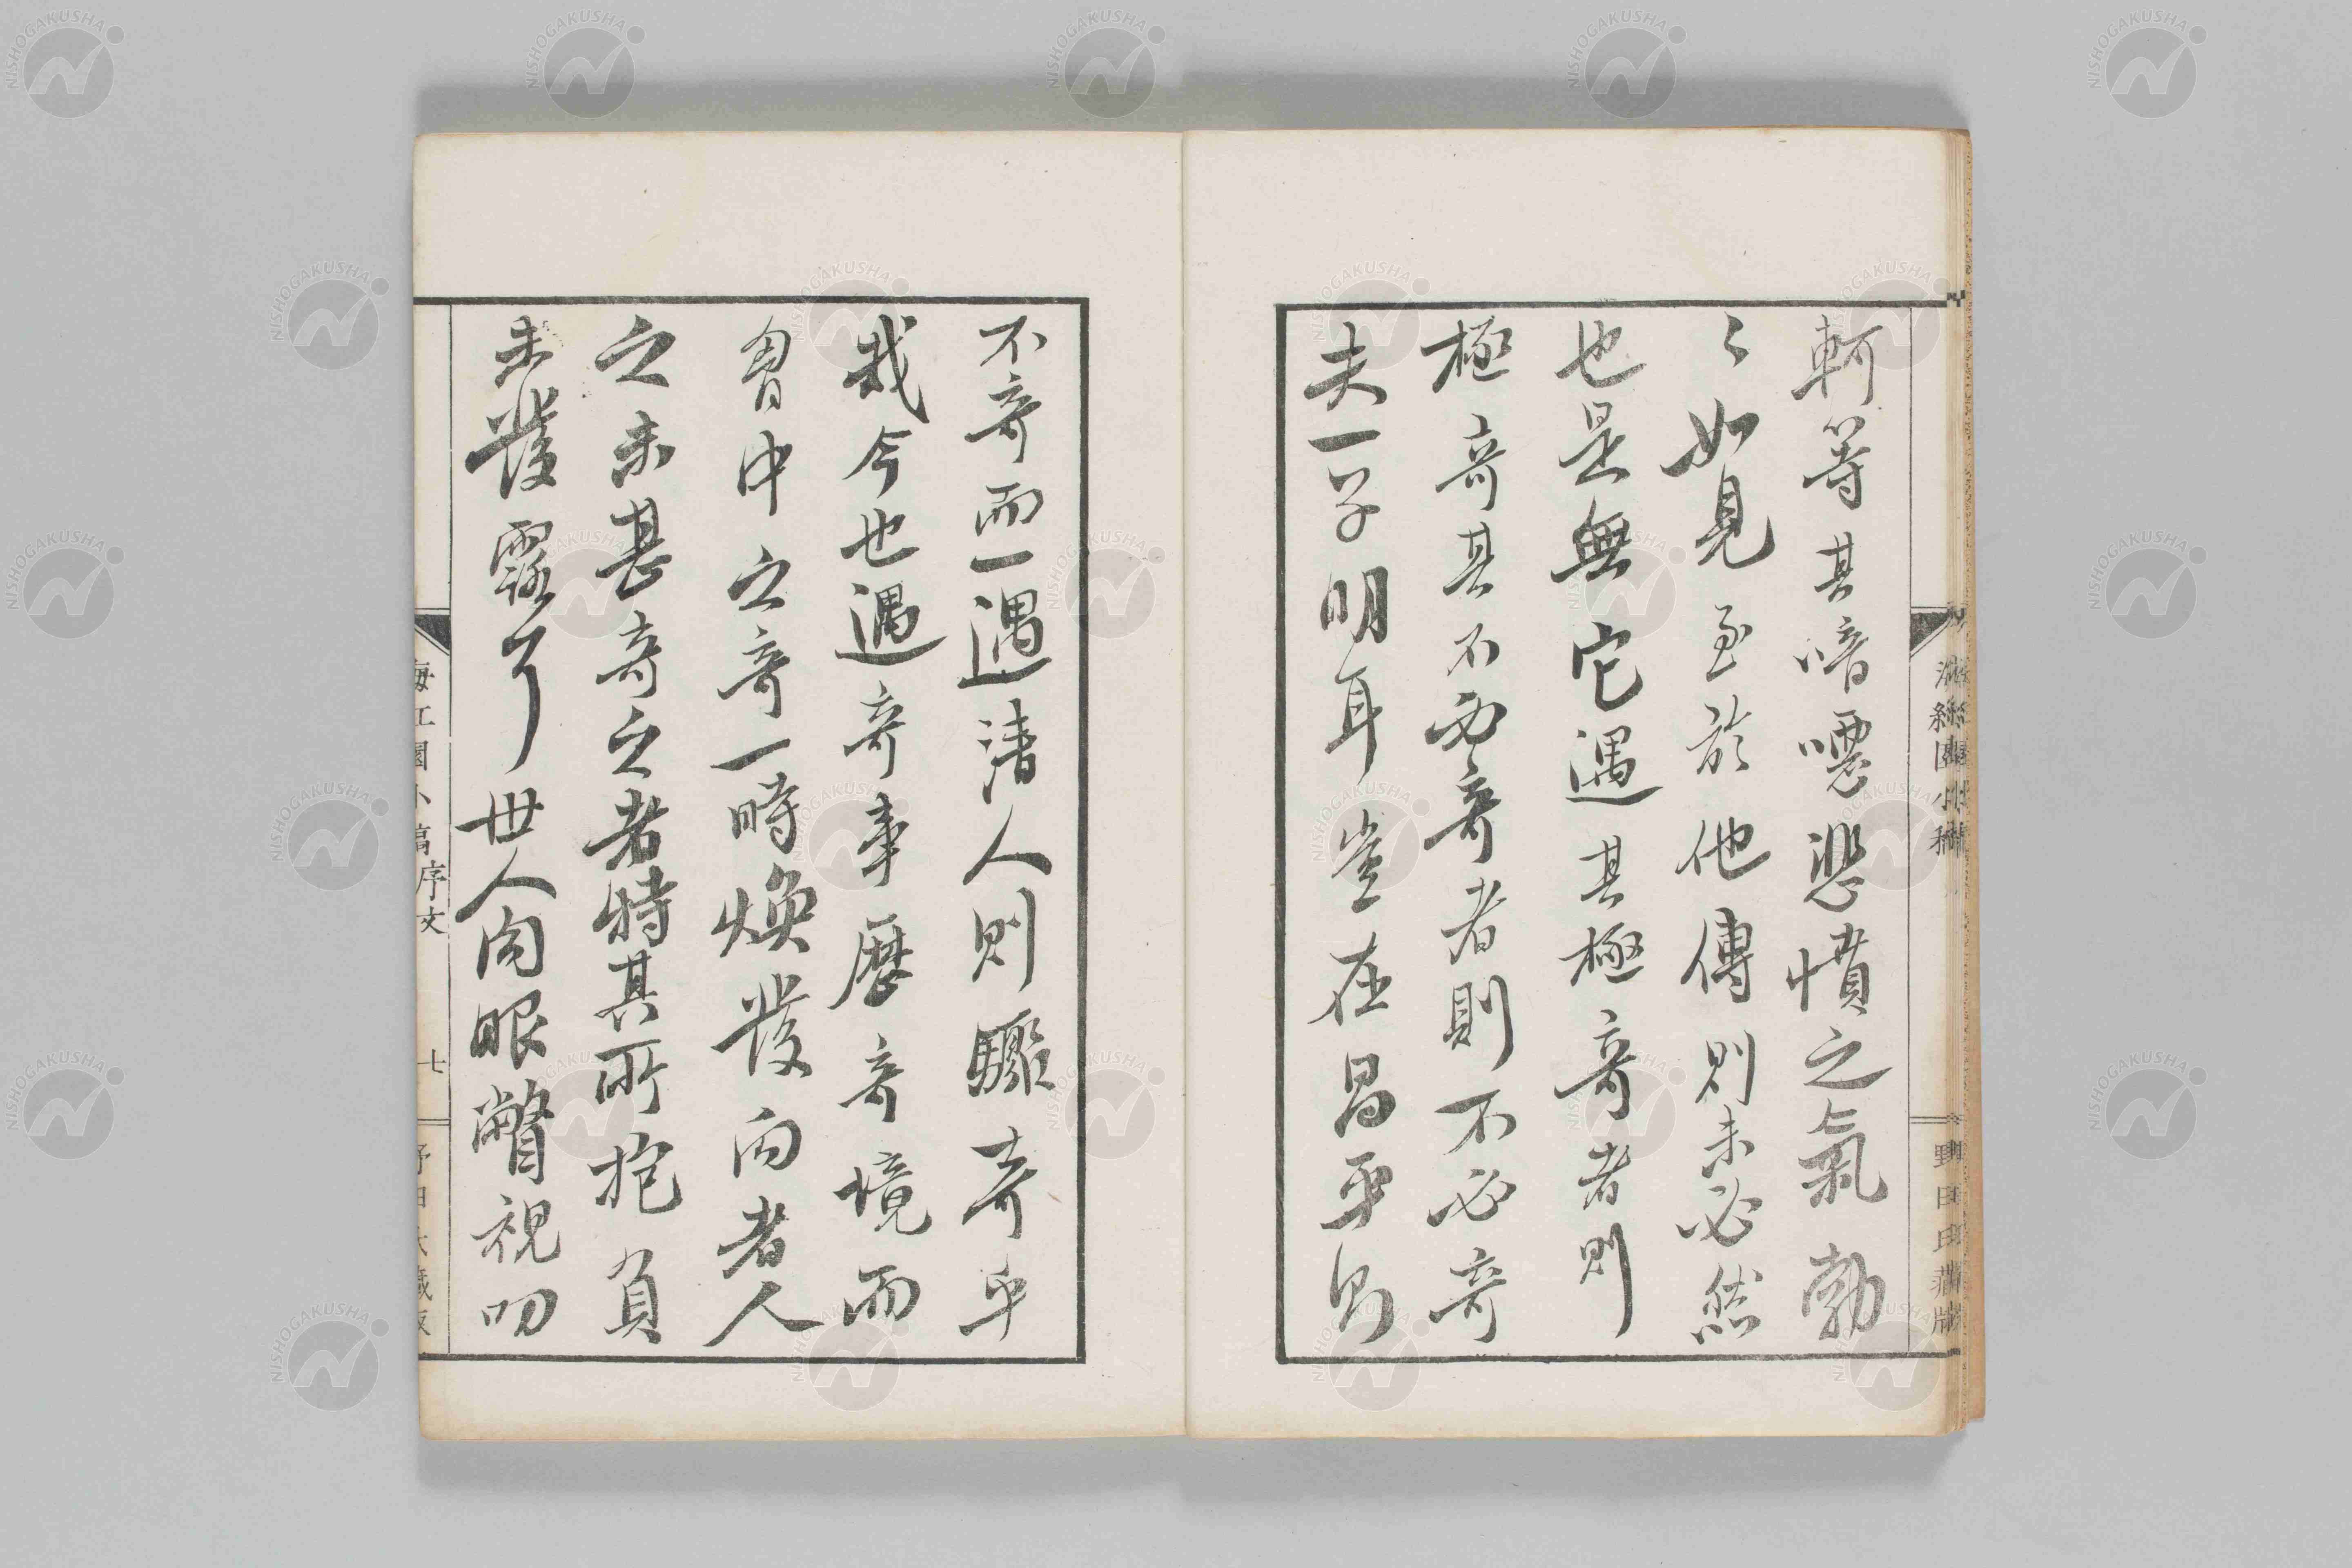 軻等其喑噁悲憤之氣勃
〻如見至於他傳則未必然
也是無它遇其極奇者則
極奇其不必奇者則不必奇
夫一子明耳豈在昌平則
不奇而一遇清人則驟奇乎
哉今也遇奇事歷奇境而
胷中之奇一時煥發向者人
之未甚奇之者特其所抱負
未發露了世人肉眼瞥視叨
海紅園小稿序文
七
野田氏藏版
NISHOGAKUSHA